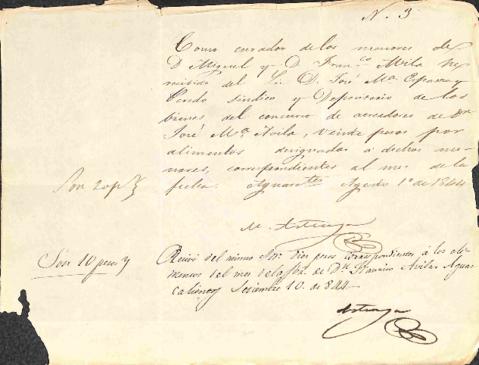 N. 3
Como curador de los menores de
D Miguel y D Franco Avila he
recibido del Sr. D. José Ma. Esparza y
síndico y Depositario de los
bienes del concurso de acreedores de Dn
José Ma. Avila, veinte pesos por
alimentos designados a dichos me-
nores, correspondientes al mes de la
fecha. Aguasts Agosto 1º de 1844
Son 20 ps
M. Arteaga
Recibí del mismo Sor. diez pesos correspondientes á los ali-
Son 10 pesos
mentos del mes de la fha. de Dn. Avila. Aguas
calientes Setiembre 10. de 844
Arteaga